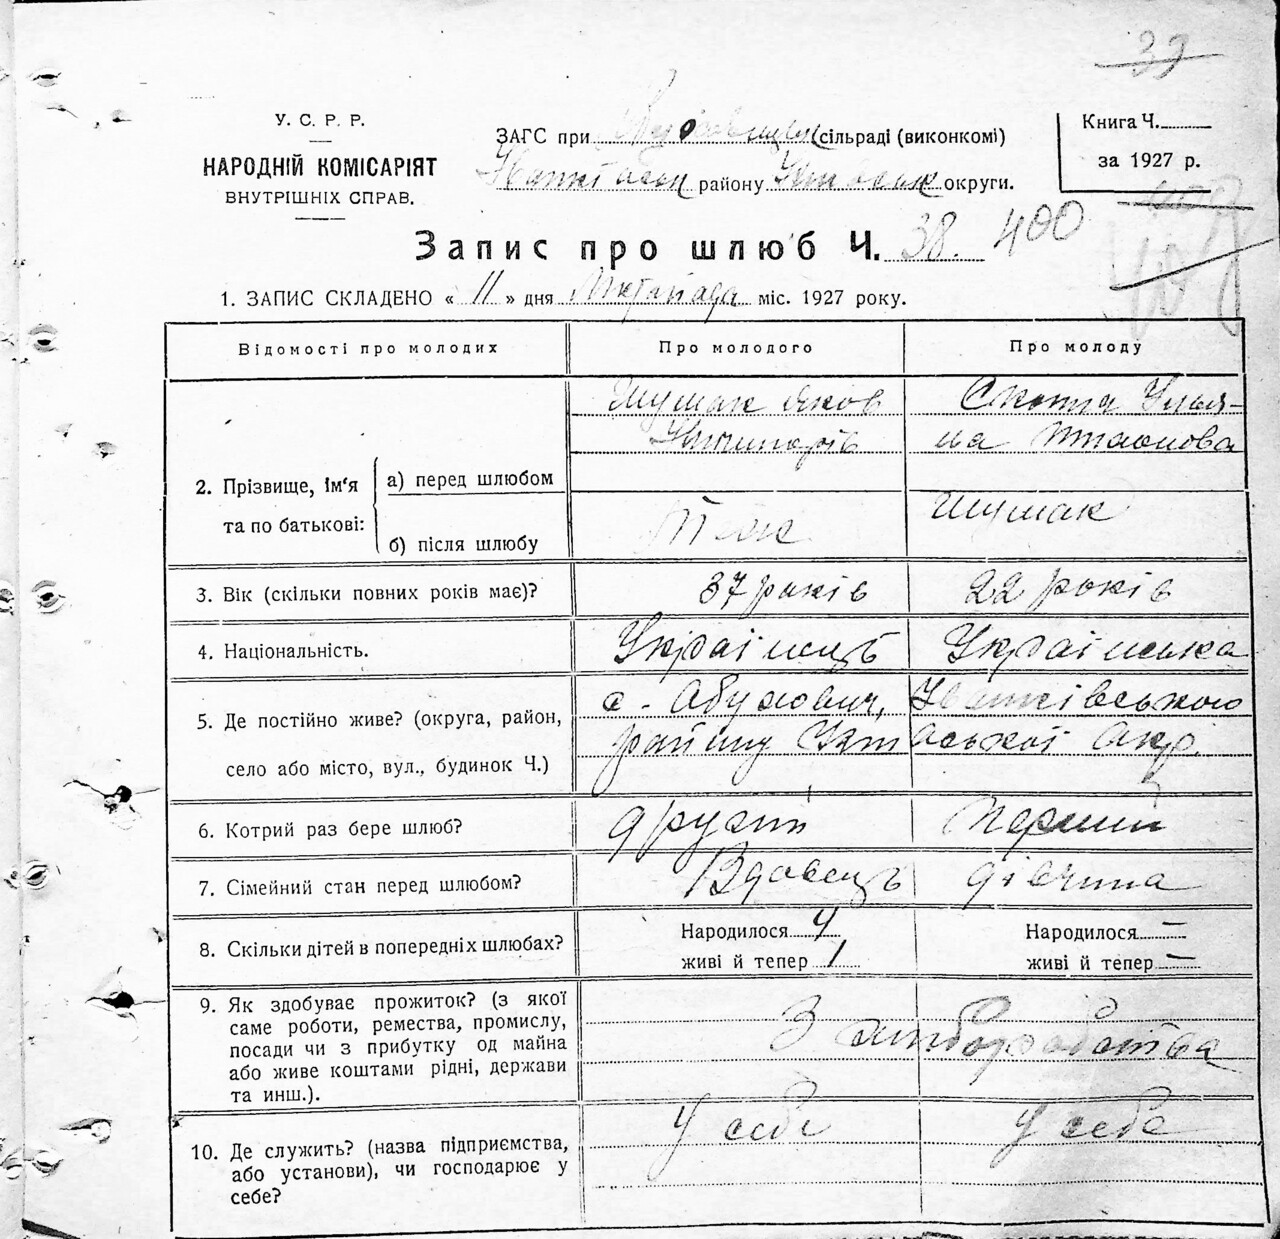 39
У. С. Р. Р.
НАРОДНІЙ КОМІСАРІЯТ
ВНУТРІШНІХ СПРАВ.
ЗАГС при сільраді (виконкомі)
району округи.
Книга Ч.
за 1927 р.
Запис про шлюб Ч. 38. 400
1. ЗАПИС СКЛАДЕНО « 11 » дня міс. 1927 року.
Відомості про молодих
Про молодого
Про молоду
2. Прізвище, ім'я
та по батькові:
а) перед шлюбом
б) після шлюбу
Шушак Яков
Уляна
Шушак
3. Вік (скільки повних років має)?
37 років
22 років
4. Національність.
Українець
Українська
5. Де постійно живе? (округа, район,
село або місто, вул., будинок Ч.)
с. Обуховичі, Іванківського
району
6. Котрий раз бере шлюб?
другий
Перший
7. Сімейний стан перед шлюбом?
Вдовець
дівчина
8. Скільки дітей в попередніх шлюбах?
Народилося 4
живі й тепер 1
Народилося —
живі й тепер —
9. Як здобуває прожиток? (з якої
саме роботи, ремества, промислу,
посади чи з прибутку од майна
або живе коштами рідні, держави
та инш.).
З хліборобства
10. Де служить? (назва підприємства,
або установи), чи господарює у
себе?
У себе
У себе